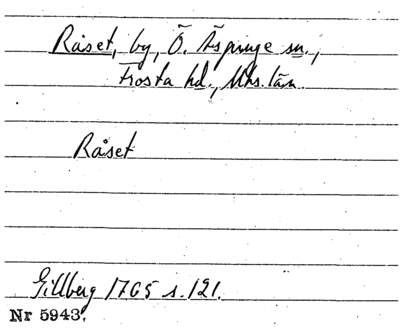 Råset, by, Ö. Äspinge sn.,
Frosta hd., Mhs. län
Råset
Gillberg 1765 s. 121.
Nr 5943.